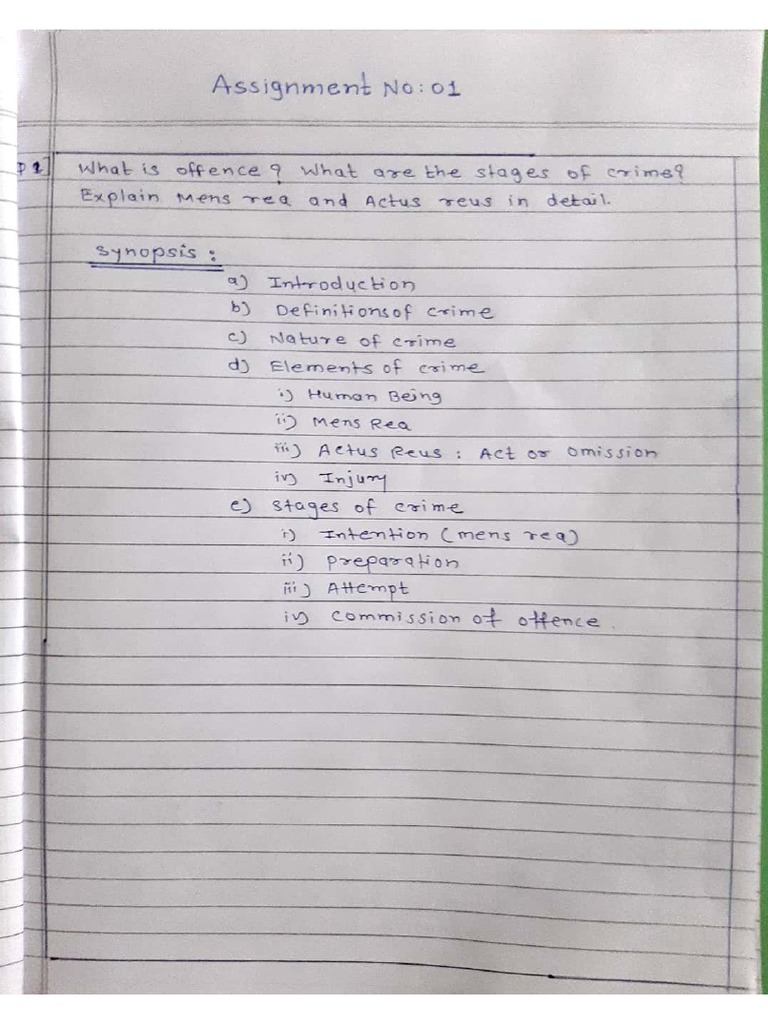 Assignment No: 01
What is offence? What are the stages of crime?
Explain Mens rea and Actus reus in detail.
Synopsis:
a) Introduction
b) Definitions of crime
c) Nature of crime
d) Elements of crime
i) Human Being
ii) Mens Rea
iii) Actus Reus : Act or omission
iv) Injury
e) Stages of crime
i) Intention (mens rea)
ii) Preparation
iii) Attempt
iv) Commission of offence.